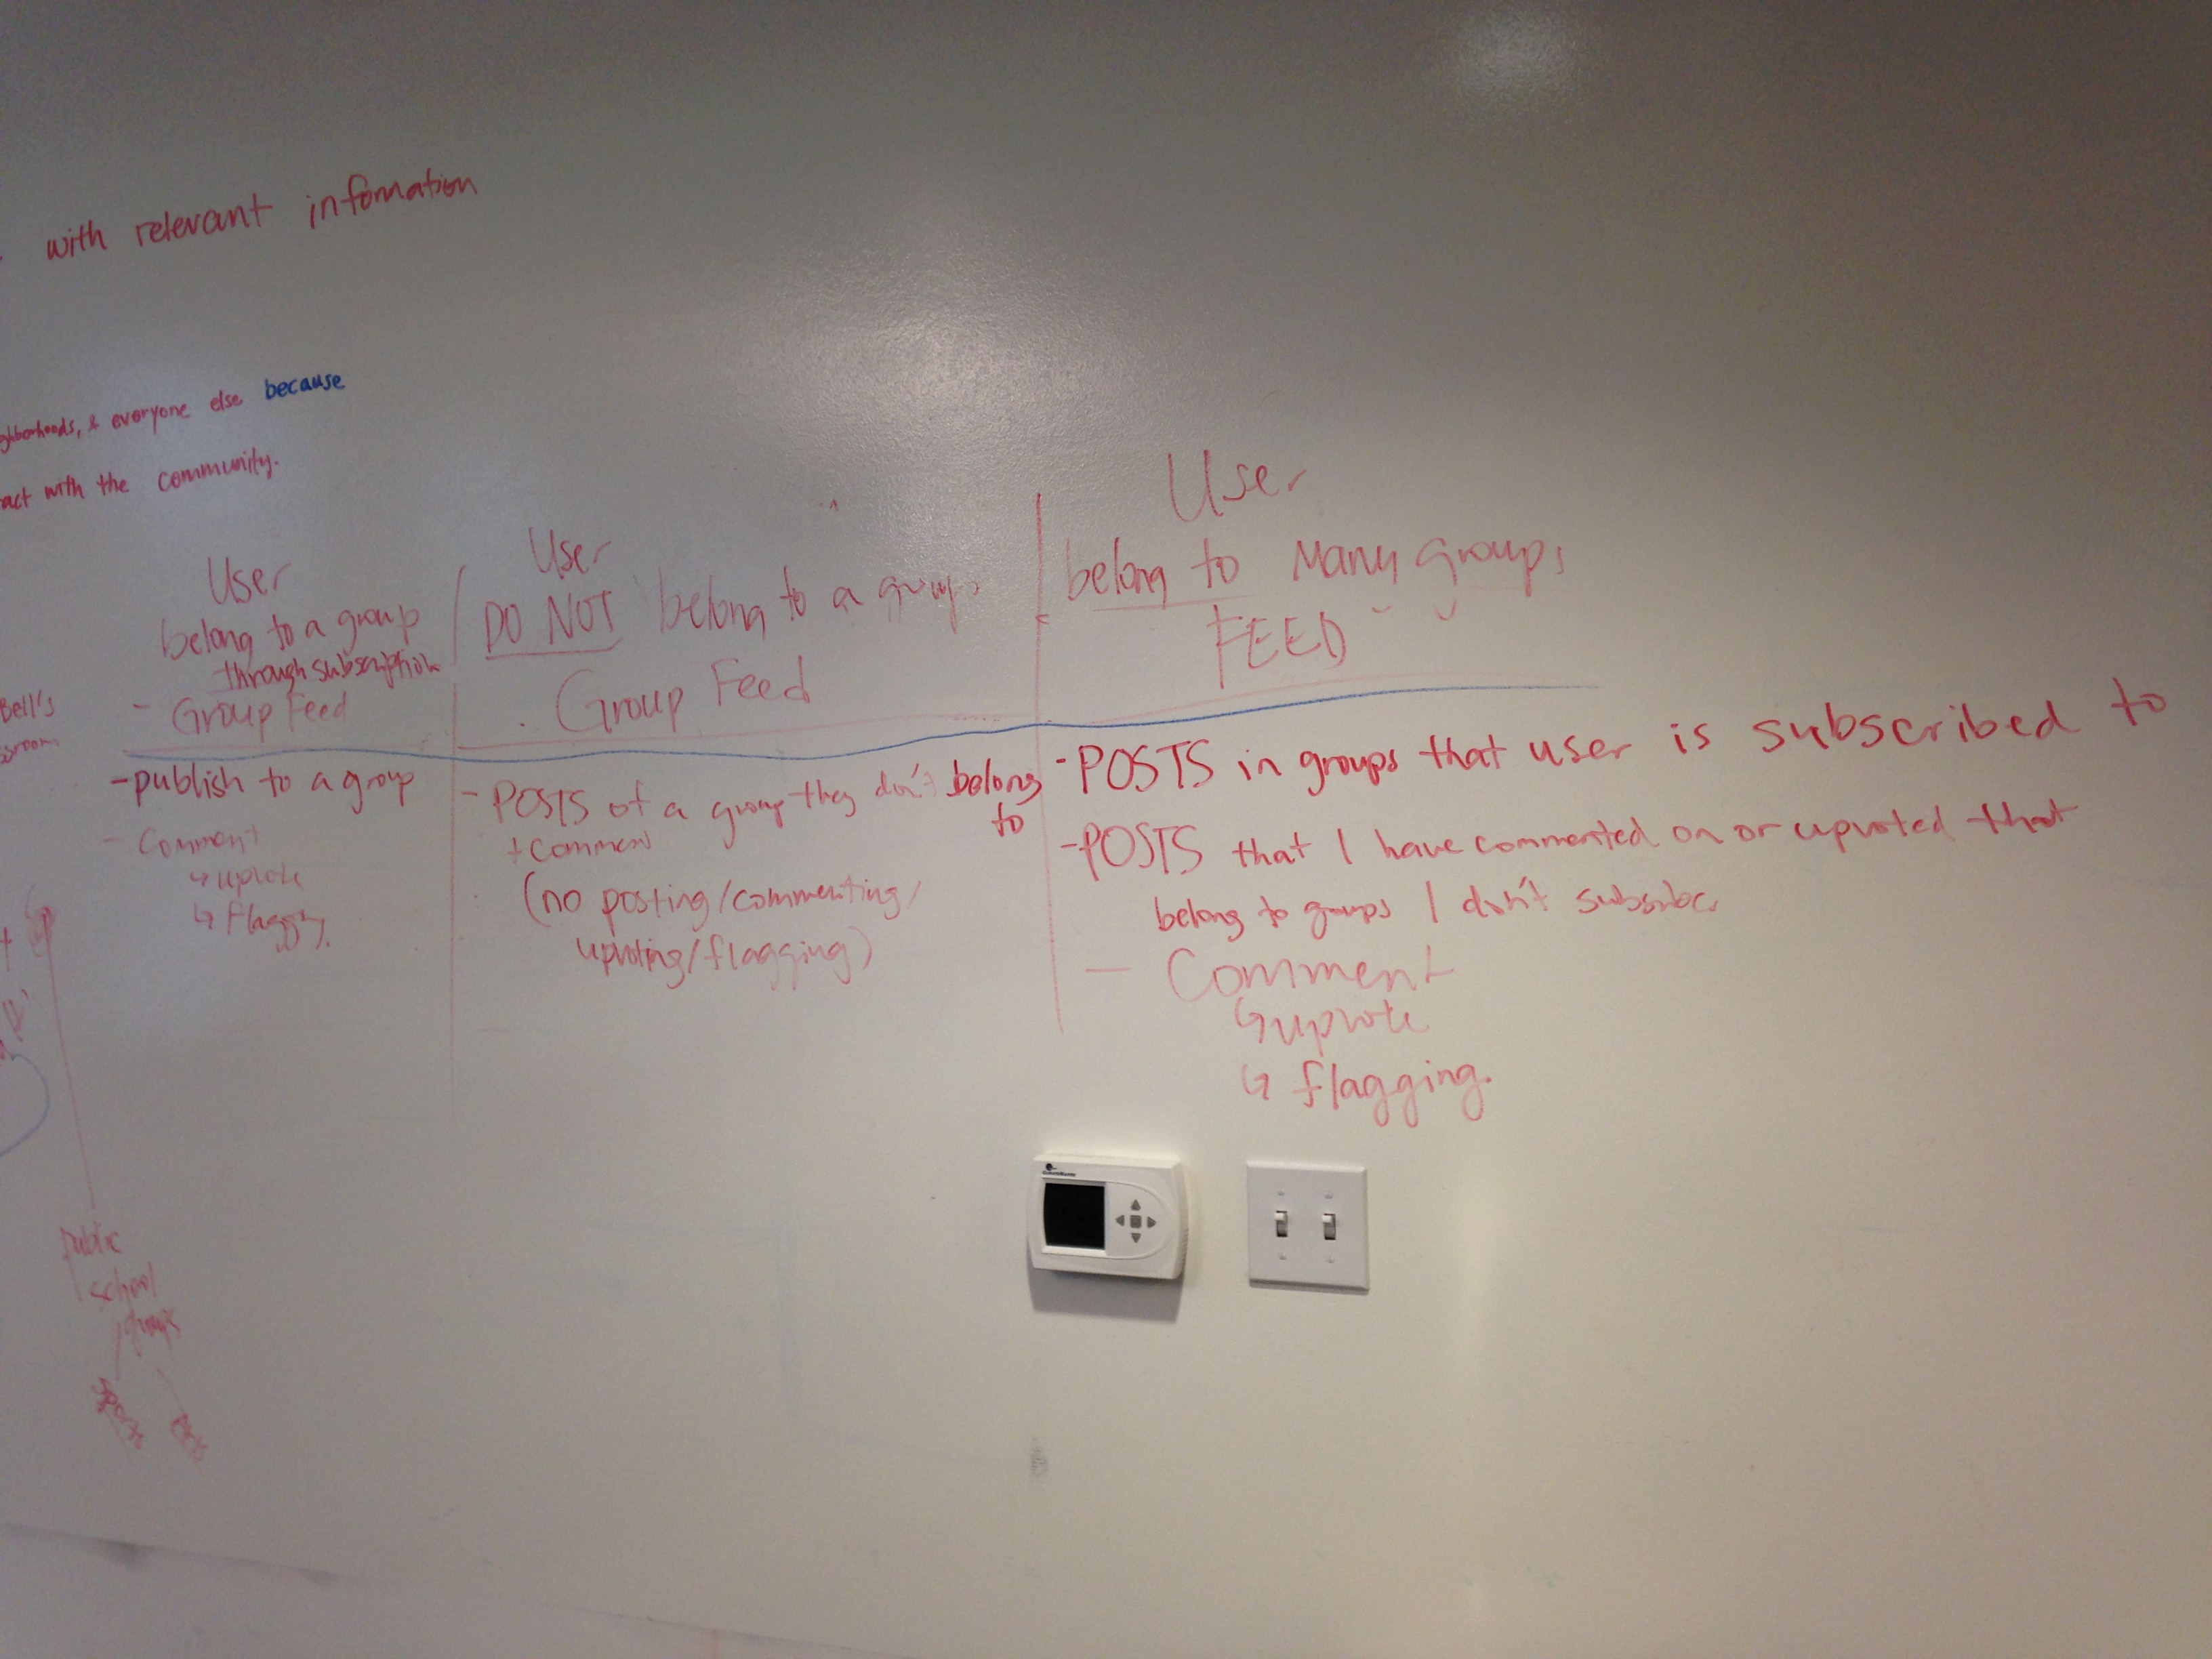 with relevant information
everyone else because
act with the community.
User
belong to a group
through subscription
- Group Feed
- publish to a group
- Comment
↳ upvote
↳ flagging
User
DO NOT belong to a group
Group Feed
- POSTS of a group they don't belong
to
+ Comment
(no posting/commenting/
upvoting/flagging)
User
belong to many groups
FEED
- POSTS in groups that user is subscribed to
- POSTS that I have commented on or upvoted that
belong to groups I don't subscribe
- Comment
↳ upvote
↳ flagging.
Bell's
public
school
groups
sports